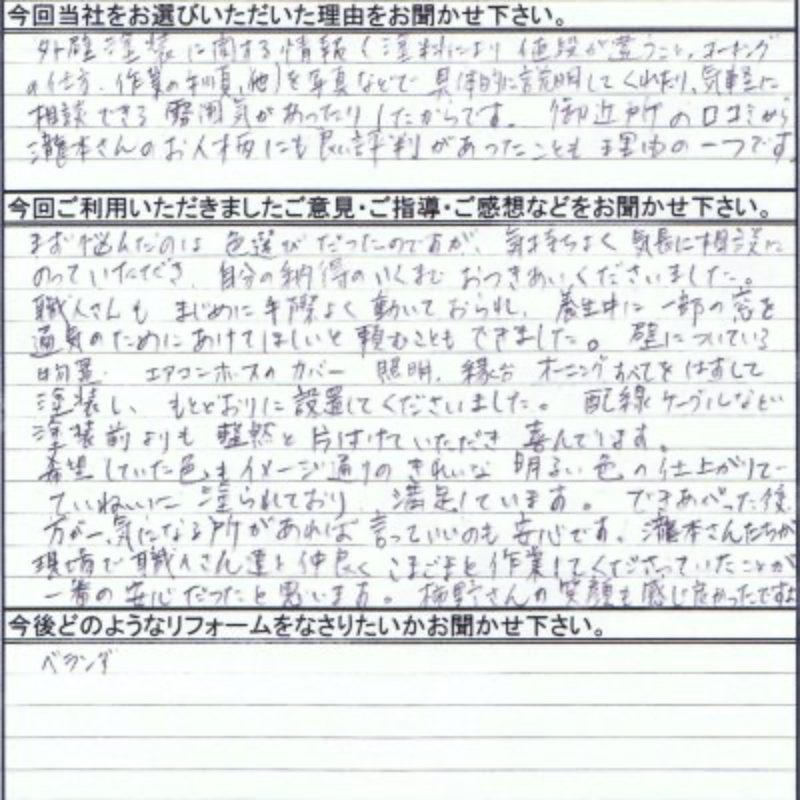 今回当社をお選びいただいた理由をお聞かせ下さい。
外壁塗装に関する情報(塗料により値段が違うこと,コーキング
の仕方、作業の手順,他)を写真などで具体的に説明してくれたり、気軽に
相談できる雰囲気があったりしたからです。御近所の口コミから
瀧本さんのお人柄にも良い評判があったことも理由の一つです
今回ご利用いただきましたご意見・ご指導・ご感想などをお聞かせ下さい。
まず悩んだのは色選びだったのですが、気持ちよく気長に相談に
のっていただき、自分の納得のいくまでおつきあいくださいました。
職人さんもまじめに手際よく動いておられ、養生中に一部の窓を
通気のためにあけてほしいと頼むこともできました。壁についている
エアコンホースのカバー 照明、縁台 オーニングすべてをはずして
塗装し、もとどおりに設置してくださいました。配線ケーブルなど
塗装前よりも整然と片付けていただき喜んでいます。
希望していた色もイメージ通りのきれいな明るい色の仕上がりで
ていねいに塗られており、満足しています。できあがった後
万が一気になる所があれば言っていいのも安心です。瀧本さんたちが
現場で職人さん達と仲良くこまごまと作業してくださっていたことが
一番の安心だったと思います。さんの笑顔も感じ良かったですよ
今後どのようなリフォームをなさりたいかお聞かせ下さい。
ベランダ